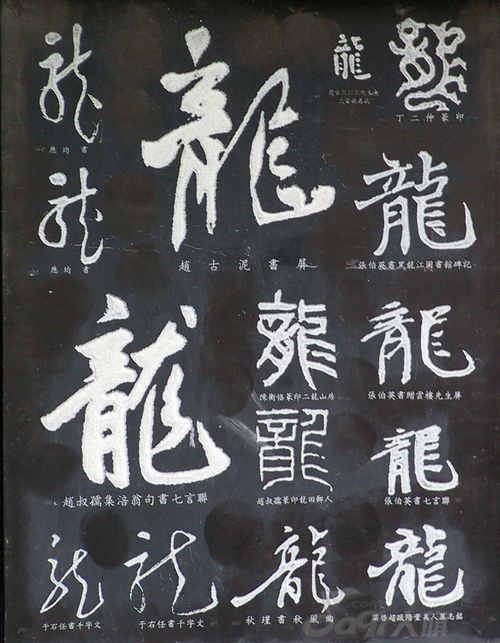 龍
應均書
龍
應均書
龍
趙古泥書屏
龍
龍
丁二仲篆印
龍
張伯英書黑龍江圖書館碑記
龍
趙叔孺集涪翁句書七言聯
龍
陳衡恪篆印二龍山房
龍
張伯英書贈雲樓先生屏
龍
趙叔孺篆印龍田鄉人
龍
張伯英書七言聯
龍
于右任書千字文
龍
于右任書千字文
龍
秋瑾書秋風曲
龍
梁啓超跋隋董美人墓志銘